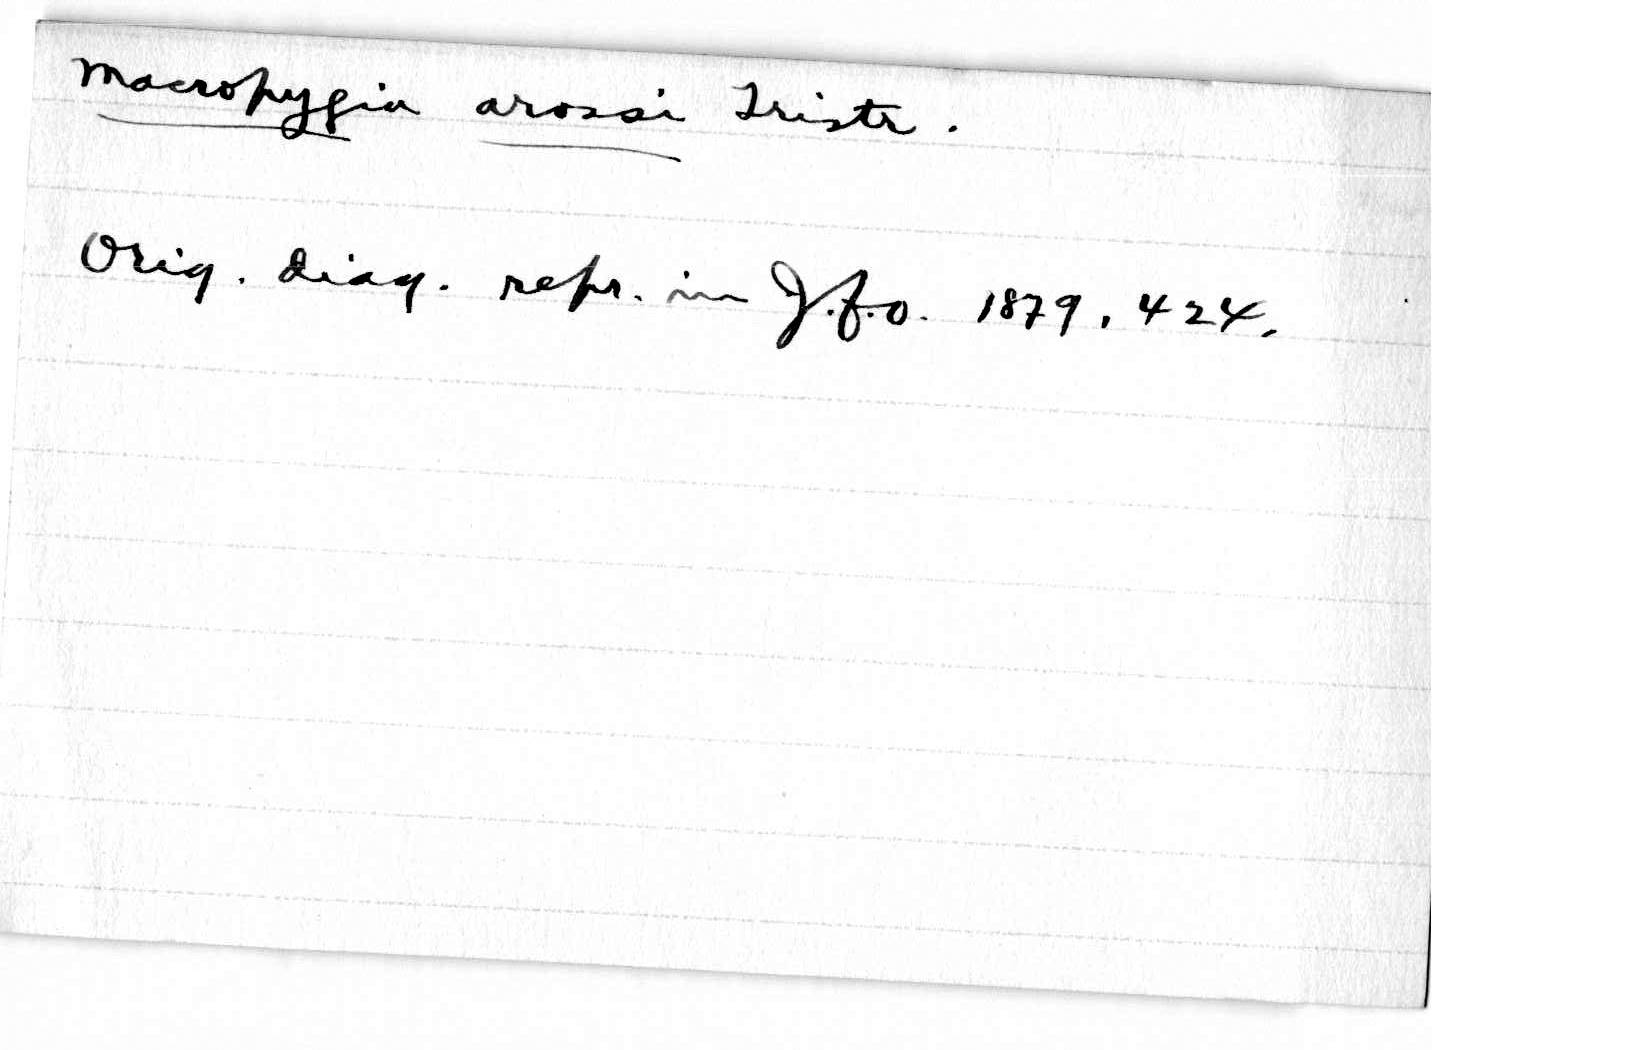 Macropygia arossi Tristr.
Orig. diag. repr. in J.f.O. 1879, 424.